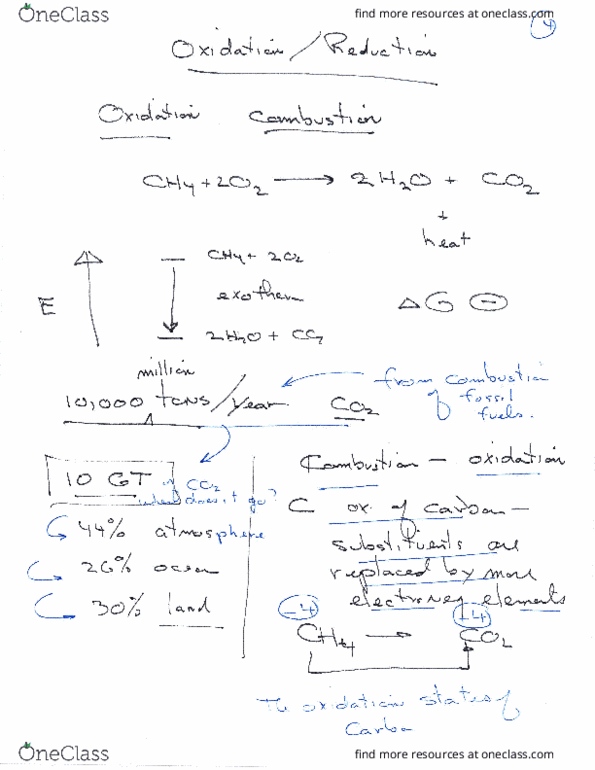 OneClass
find more resources at oneclass.com
4
Oxidation / Reduction
Oxidation Combustion
CH4 + 2O2 → 2H2O + CO2
+
heat
E
CH4 + 2O2
exotherm
2H2O + CO2
ΔG ⊖
million
10,000 tons/year CO2
from combustion
of fossil
fuels.
10 GT of CO2
where does it go?
44% atmosphere
26% ocean
30% land
Combustion – oxidation
C ox. of carbon –
substituents are
replaced by more
electroneg elements
-4
CH4 → CO2
The oxidation states of
Carbo
OneClass
find more resources at oneclass.com